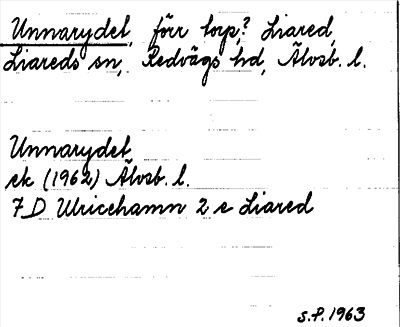 Unnarydet, förr torp,? Liared,
Liareds sn, Redvägs hd, Älvsb. l.
Unnarydet
ek (1962) Älvsb. l.
7 D Ulricehamn 2 e Liared
S.P. 1963